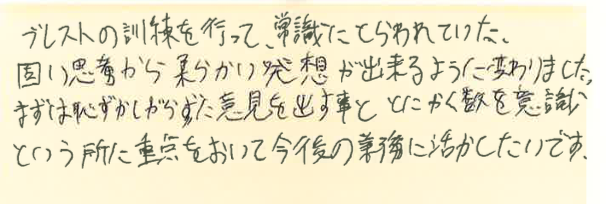 ブレストの訓練を行って、常識にとらわれていた、
固い思考から柔らかい発想が出来るように変わりました。
まずは恥ずかしがらずに意見を出す事と とにかく数を意識
という所に重点をおいて今後の業務に活かしたいです。